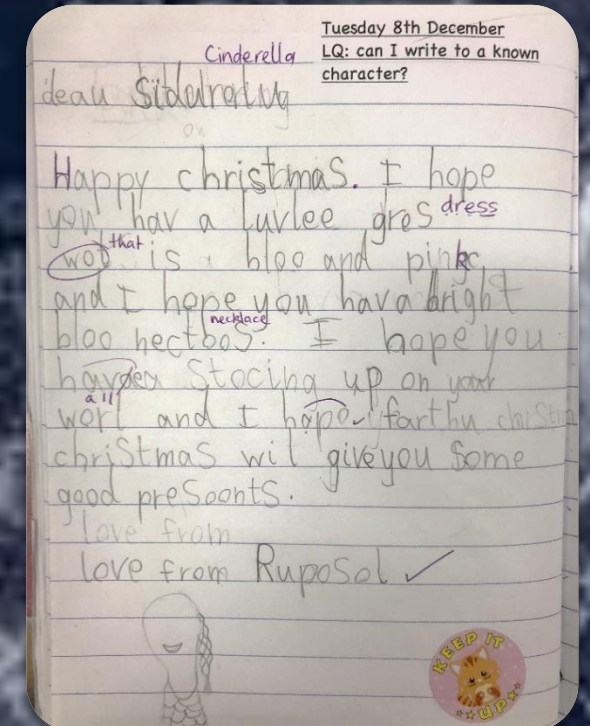 Tuesday 8th December
LQ: can I write to a known
character?
Cinderella
dear
Happy christmas. I hope
you hav a luvlee gres dress
wot that is bloo and pink
and I hope you hav a bright
bloo necloos. necklace I hope you
Stocing up on your
worl all and I hope farthu
christmas wil give you some
good presoonts.
love from
love from Ruposol
KEEP IT UP